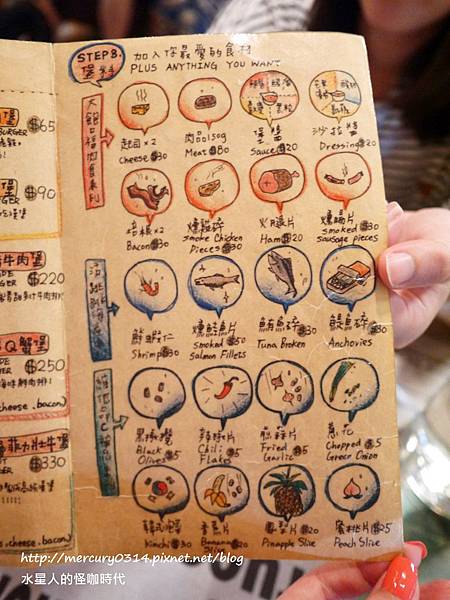 STEP 3.
加入你最愛的食材
PLUS ANYTHING YOU WANT
起司x2
Cheese $30
肉品150g
Meat $80
堡醬
Sauce $20
沙拉醬
Dressing $20
培根x2
Bacon $30
燻雞碎
smoke Chicken
Pieces $30
火腿片
Ham $20
燻腸片
smoked $30
sausage pieces
鮮蝦仁
Shrimp $30
燻鮭魚片
smoked $50
salmon Fillets
鮪魚碎
Tuna Broken $30
鯷魚碎
Anchovies $30
黑橄欖
Black
Olives $5
辣椒片
Chili
Flakes $5
蒜碎片
Fried $5
Garlic
蔥花
Chopped $5
Green Onion
韓式泡菜
Kimchi $30
香蕉片
Banana $20
鳳梨片 $20
Pineapple Slice
蜜桃片 $25
Peach Slice
堡
BURGER
$65
堡
$90
牛肉堡
$220
Q蟹堡
$250
cheese.bacon)
菲力牛堡
$330
.cheese.bacon)
http://mercury0314.pixnet.net/blog
水星人的怪咖時代